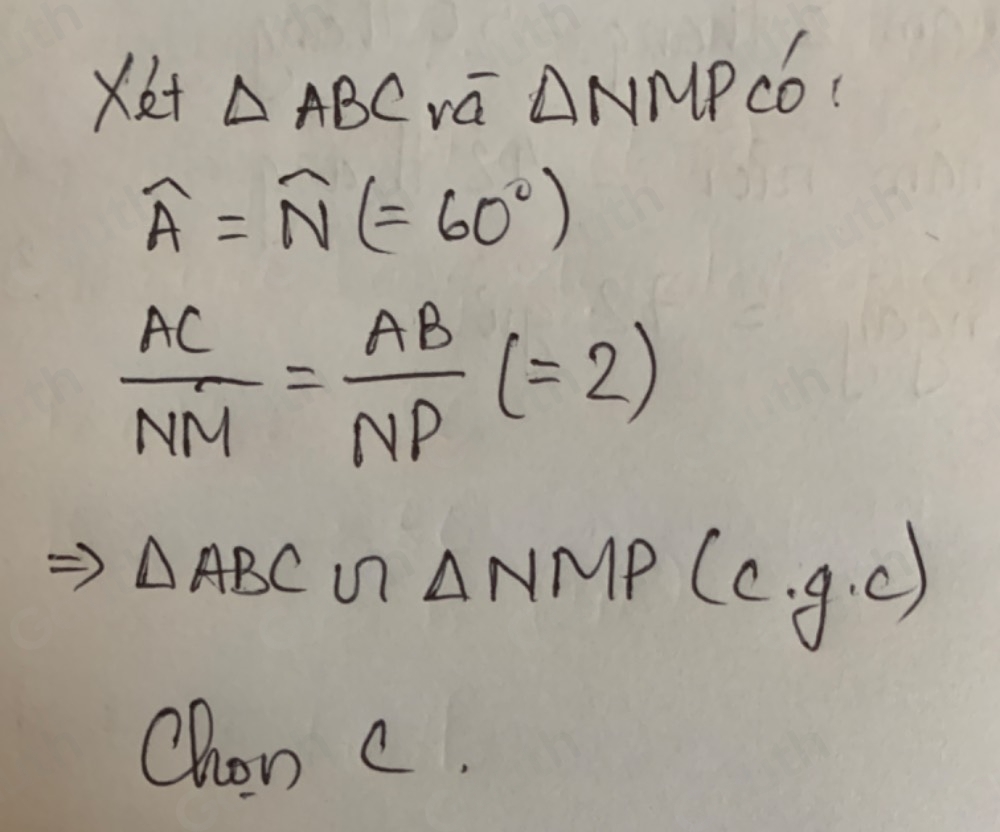 Xét Δ ABC và Δ NMP có:
Â = N̂ (= 60°)
AC/NM = AB/NP (= 2)
⇒ Δ ABC ∽ Δ NMP (c.g.c)
Chọn C.